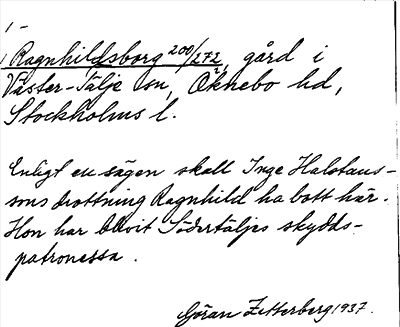 1 -
Ragnhildsborg 200/272, gård i
Väster-Tälje sn, Öknebo hd,
Stockholms l.
Enligt en sägen skall Inge Halstans-
sons drottning Ragnhild ha bott här.
Hon har blivit Södertäljes skydds-
patronessa.
Göran Zetterberg 1937.